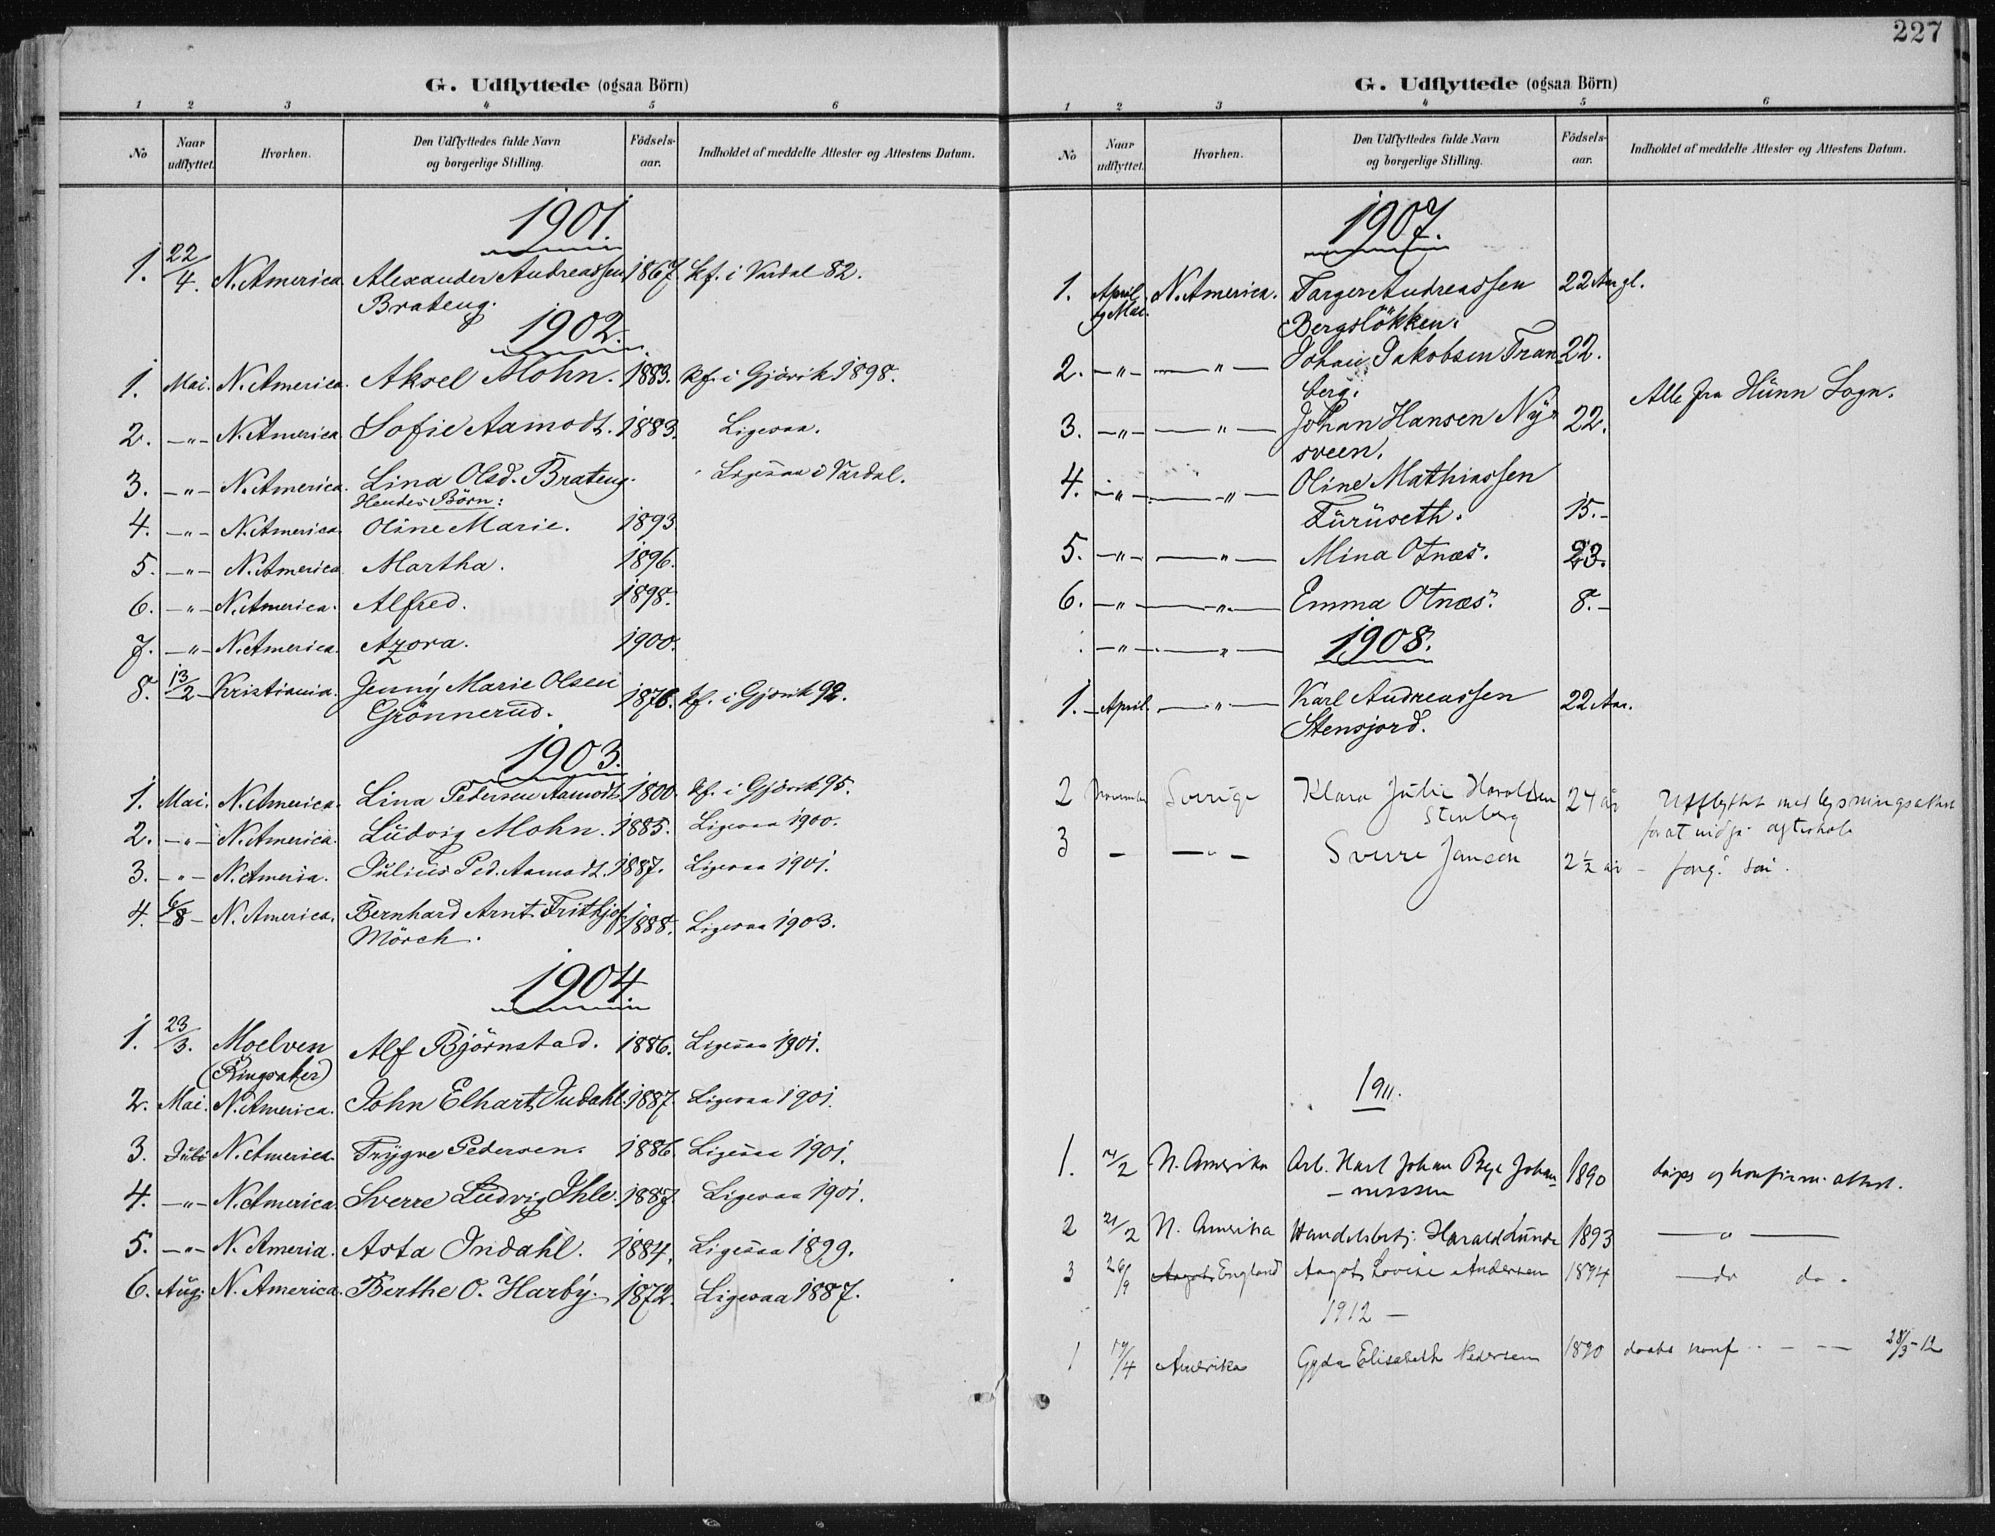 G. Udflyttede (ogsaa Börn)
1 2 3 4 5 6
No Naar udflyttet. Hvorhen. Den Udflyttedes fulde Navn og borgerlige Stilling. Födsels-aar. Indholdet af meddelte Attester og Attestens Datum.
1901.
1. 22/4. N. America. Alexander Andreassen 1867. kf. i Vardal 82.
Brateng.
1902.
1. Mai. N. America. Aksel Mohn. 1883. kf. i Gjövik 1898.
2. -"- N. America. Sofie Aamodt. 1883. Ligesaa.
3. -"- N. America. Lina Olsd. Brateng. Ligesaa i Vardal.
Hendes Börn:
4. -"- N. America. Oline Marie. 1893.
5. -"- N. America. Martha. 1896.
6. -"- N. America. Alfred. 1898.
7. -"- N. America. Azora. 1900.
8. 13/2 Kristiania. Jenny Marie Olsen 1876. kf. i Gjövik 92.
Grönnerud.
1903.
1. Mai. N. America. Lina Pedersen Aamodt 1800. kf. i Gjövik 95.
2. -"- N. America. Ludvig Mohn. 1885. Ligesaa 1900.
3. -"- N. Ameria. Julius Ped. Aamodt. 1887. Ligesaa 1901.
4. 6/8 N. America. Bernhard Arnt Frithjof 1888. Ligesaa 1903.
Mörch.
1904.
1. 23/3. Moelven Alf Björnstad. 1886. Ligesaa 1901.
(Ringsaker)
2. Mai. N. America. John Elhart Indahl. 1887. Ligesaa 1901.
3. Juli N. America. Trygve Pedersen. 1886. Ligesaa 1901.
4. -"- N. America. Sverre Ludvig Ihle. 1887 Ligesaa 1901.
5. -"- N. Ameria. Asta Indahl. 1884. Ligesaa 1899.
6. Aug. N. America. Berthe O. Harby. 1872. Ligesaa 1887.
227
G. Udflyttede (ogsaa Börn)
1 2 3 4 5 6
No Naar udflyttet. Hvorhen. Den Udflyttedes fulde Navn og borgerlige Stilling. Födsels-aar. Indholdet af meddelte Attester og Attestens Datum.
1907.
1. April N. America. Torger Andreassen 22 Aar gl.
og Mai. Bergslökken.
2. -"- -"- Johan Jakobsen Tran 22.
berg. Alle fra Hunn Sogn.
3. -"- -"- Johan Hansen Ny- 22.
sveen.
4. -"- -"- Oline Mathiassen
Furuseth. 15.-
5. -"- -"- Mina Otnæs. 23.
6. -"- -"- Emma Otnæs. 8.-
-"- -"- 1908.
1. April. -"- Karl Andreassen 22 Aar.
Stensjord.
2 November Sverige Klara Julie Haraldsen 24 år Utflyttet med lysningsattest
Stenberg for at indgå ægteskab
3 - -"- Sverre Jansen 2½ år - sön.
1911.
1. /2 N. Amerika Arb. Karl Johan Johan- 1890 daaps og konfirm. attest.
-nessen
2 21/2 N. Amerika Handelsbetj. Harald Lunde 1893 -"-
3 26/9 England Aagot Lovise Andersen 1894 do do.
1912 -
1 19/4 Amerika Gyda Elisabeth Pedersen 1890 daabs konf - - - 28/3-12